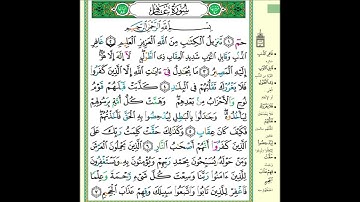 سُورَةُ غَافِرٍ
بِسْمِ اللَّهِ الرَّحْمَٰنِ الرَّحِيمِ
حمٓ ۝١ تَنزِيلُ ٱلْكِتَٰبِ مِنَ ٱللَّهِ ٱلْعَزِيزِ ٱلْعَلِيمِ ۝٢ غَافِرِ
ٱلذَّنۢبِ وَقَابِلِ ٱلتَّوْبِ شَدِيدِ ٱلْعِقَابِ ذِى ٱلطَّوْلِ لَآ إِلَٰهَ إِلَّا هُوَ
إِلَيْهِ ٱلْمَصِيرُ ۝٣ مَا يُجَٰدِلُ فِىٓ ءَايَٰتِ ٱللَّهِ إِلَّا ٱلَّذِينَ كَفَرُوا۟
فَلَا يَغْرُرْكَ تَقَلُّبُهُمْ فِى ٱلْبِلَٰدِ ۝٤ كَذَّبَتْ قَبْلَهُمْ قَوْمُ
نُوحٍ وَٱلْأَحْزَابُ مِنۢ بَعْدِهِمْ وَهَمَّتْ كُلُّ أُمَّةٍۭ بِرَسُولِهِمْ
لِيَأْخُذُوهُ وَجَٰدَلُوا۟ بِٱلْبَٰطِلِ لِيُدْحِضُوا۟ بِهِ ٱلْحَقَّ فَأَخَذْتُهُمْ
فَكَيْفَ كَانَ عِقَابِ ۝٥ وَكَذَٰلِكَ حَقَّتْ كَلِمَتُ رَبِّكَ عَلَى
ٱلَّذِينَ كَفَرُوٓا۟ أَنَّهُمْ أَصْحَٰبُ ٱلنَّارِ ۝٦ ٱلَّذِينَ يَحْمِلُونَ ٱلْعَرْشَ
وَمَنْ حَوْلَهُۥ يُسَبِّحُونَ بِحَمْدِ رَبِّهِمْ وَيُؤْمِنُونَ بِهِۦ وَيَسْتَغْفِرُونَ
لِلَّذِينَ ءَامَنُوا۟ رَبَّنَا وَسِعْتَ كُلَّ شَىْءٍ رَّحْمَةً وَعِلْمًا
فَٱغْفِرْ لِلَّذِينَ تَابُوا۟ وَٱتَّبَعُوا۟ سَبِيلَكَ وَقِهِمْ عَذَابَ ٱلْجَحِيمِ ۝٧